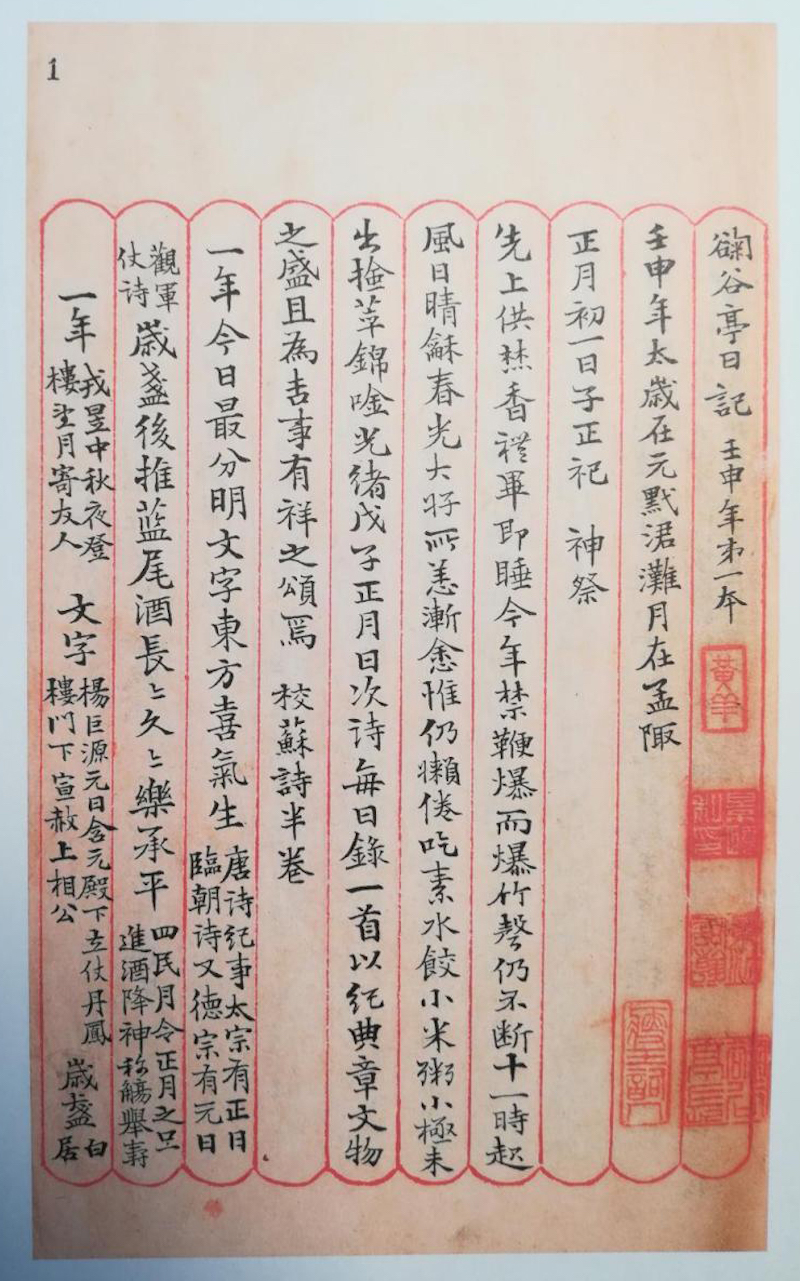 1
谷亭日記 壬申年第一本
黃羊
壬申年太歲在元黓涒灘月在孟陬
正月初一日子正祀 神祭
先上供焚香禮畢即睡今年禁鞭爆而爆竹聲仍不斷十一時起
風日晴龢春光大好所恙漸愈惟仍懶倦吃素水餃小米粥小極未
出撿苹錦唫光緒戊子正月日次詩每日錄一首以紀典章文物
之盛且為吉事有祥之頌焉 校蘇詩半卷
一年今日最分明文字東方喜氣生 唐詩紀事太宗有正日臨朝詩又德宗有元日
觀軍仗詩 歲盞後推藍尾酒長〻久〻樂承平 四民月令正月之旦進酒降神称觴舉壽
一年 戎昱中秋夜登樓望月寄友人 文字 楊巨源元日含元殿下立仗丹鳳樓門下宣赦上相公 歲盞 白居